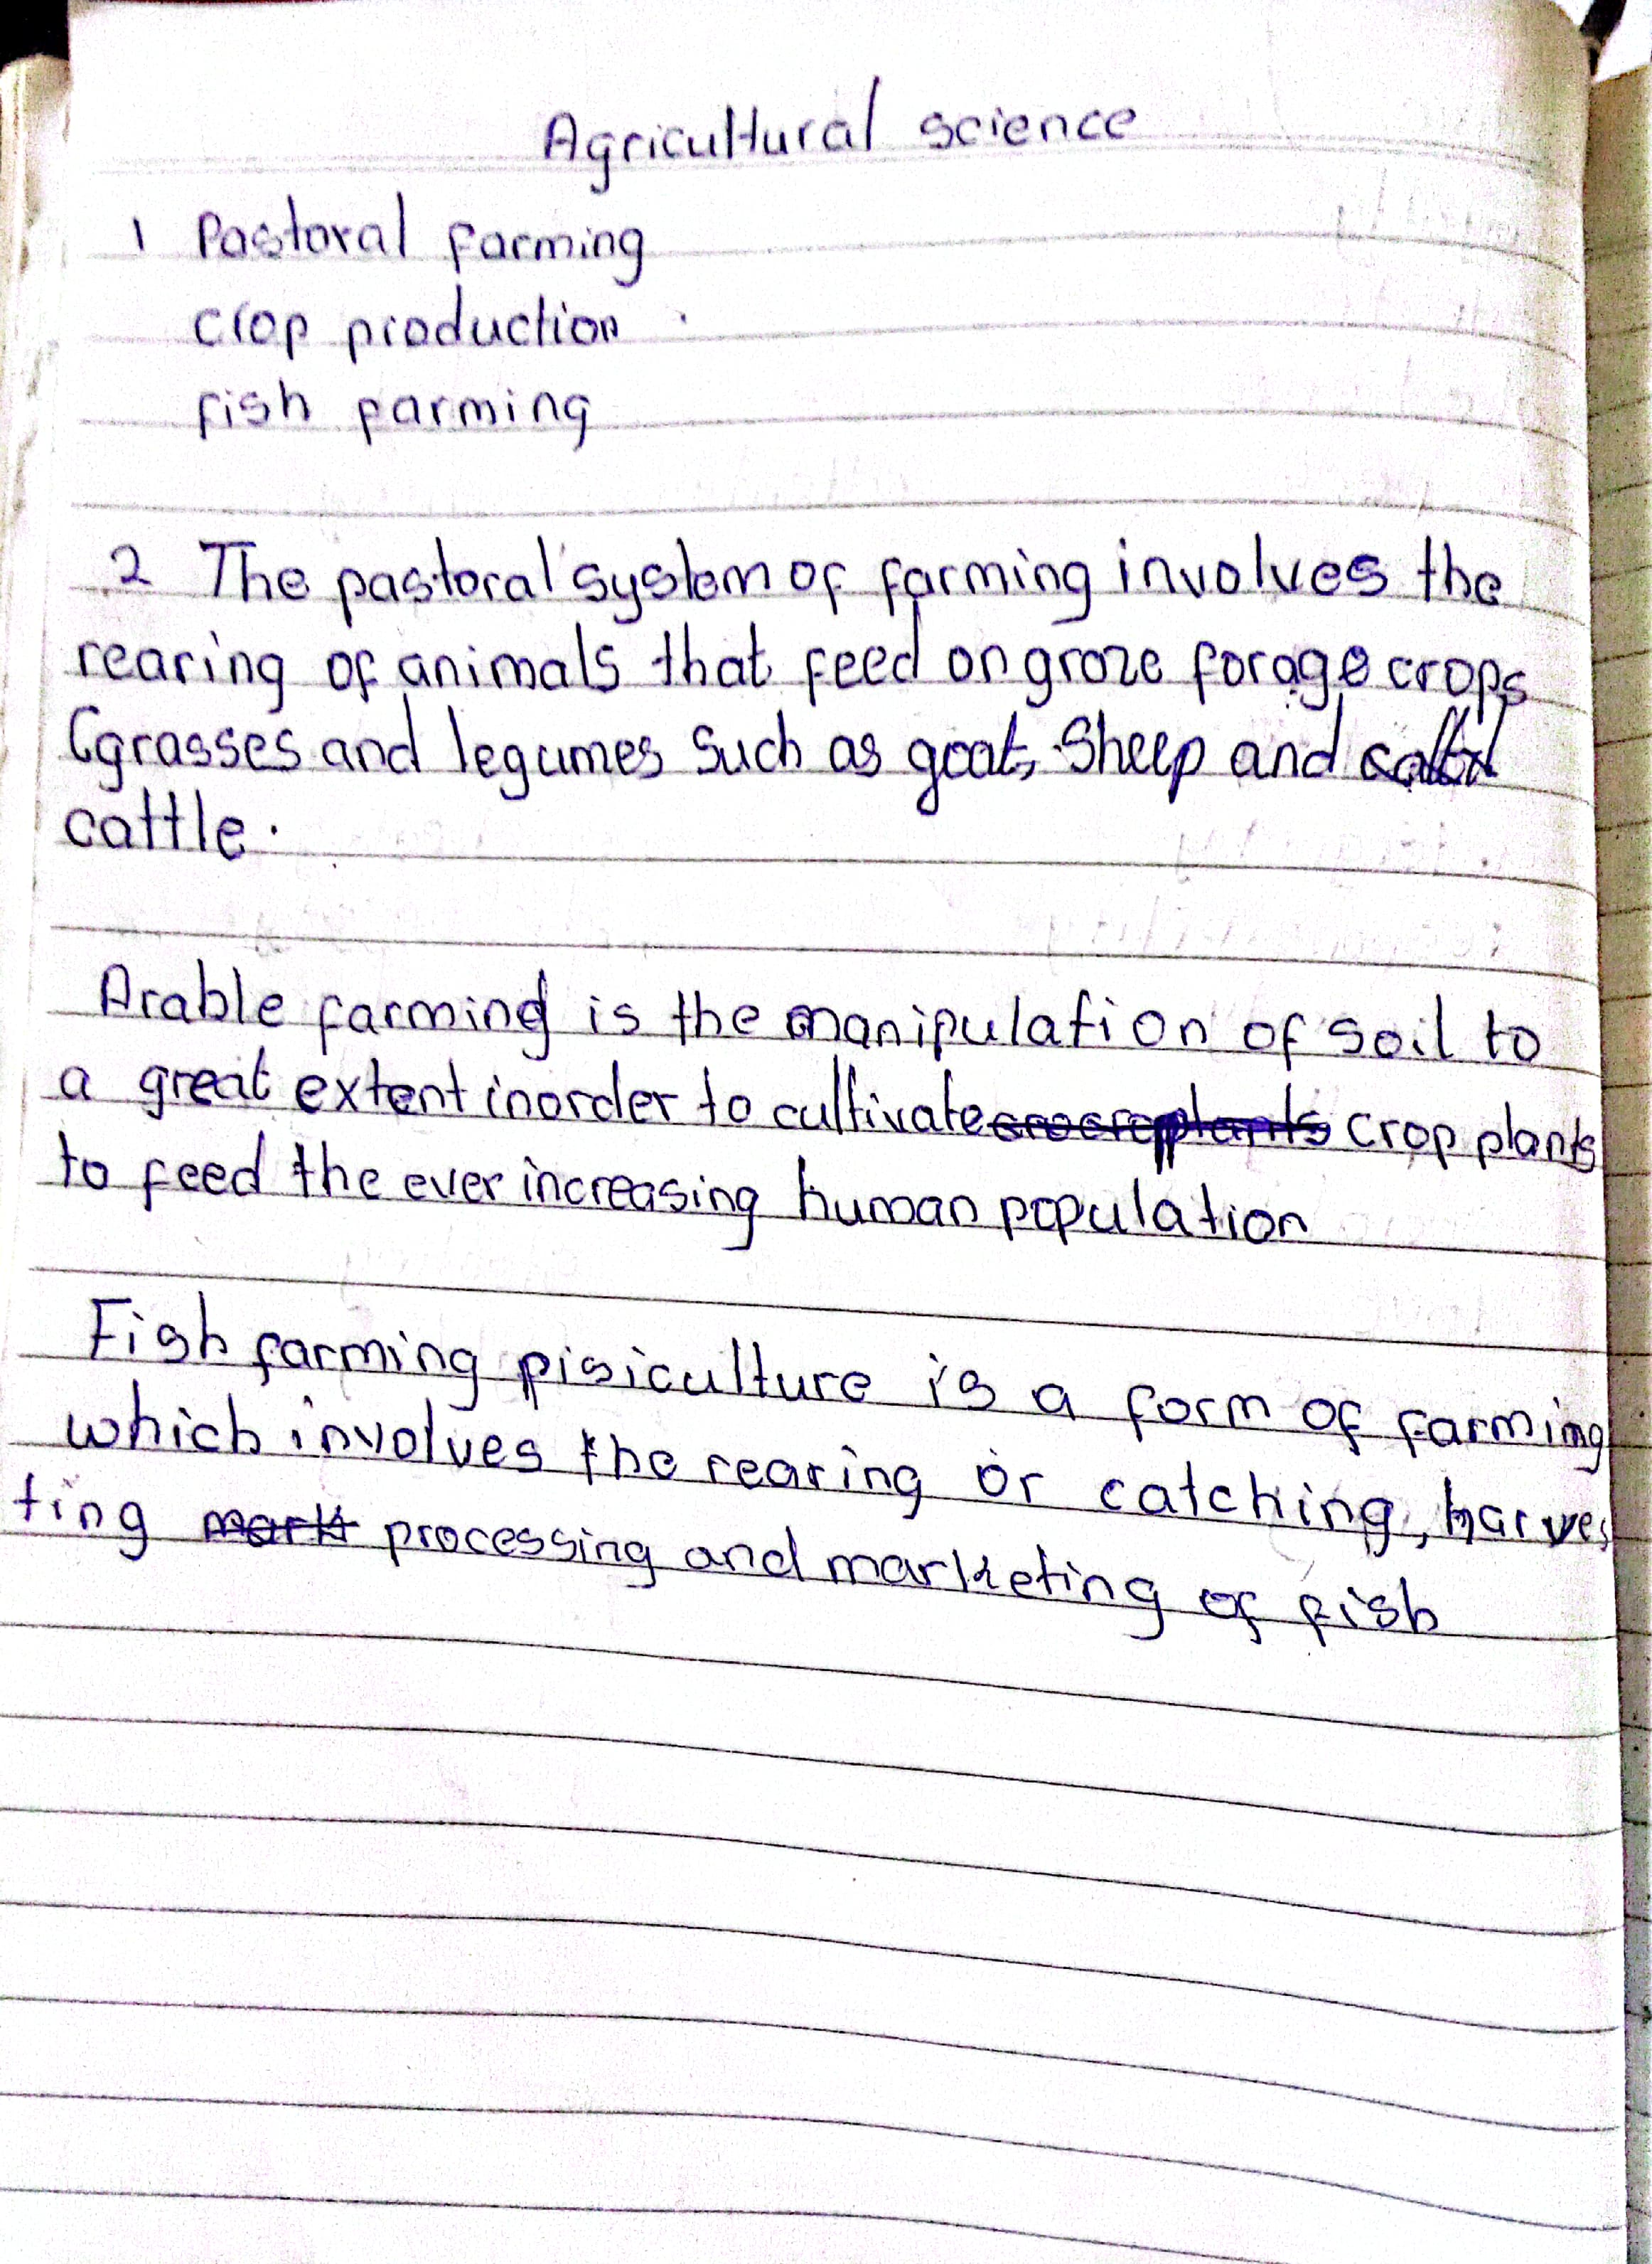 Agricultural science
1 Pastoral farming
crop production
fish farming
2 The pastoral system of farming involves the
rearing of animals that feed on graze forage crops
(grasses and legumes such as goat, Sheep and
cattle.
Arable farming is the manipulation of soil to
a great extent inorder to cultivate crop plants
to feed the ever increasing human population
Fish farming pisiculture is a form of farming
which involves the rearing or catching, harves
ting processing and marketing of fish